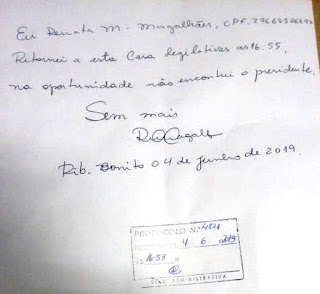 Eu Renata M. Magalhães, CPF. 29668526893
Retornei a esta Casa legislativas as 16:55,
na oportunidade não encontrei o presidente.
Sem mais
Rib. Bonito 04 de junho de 2019.
PROTOCOLO N.º
4 6 2019
16:53
ADMINISTRATIVA